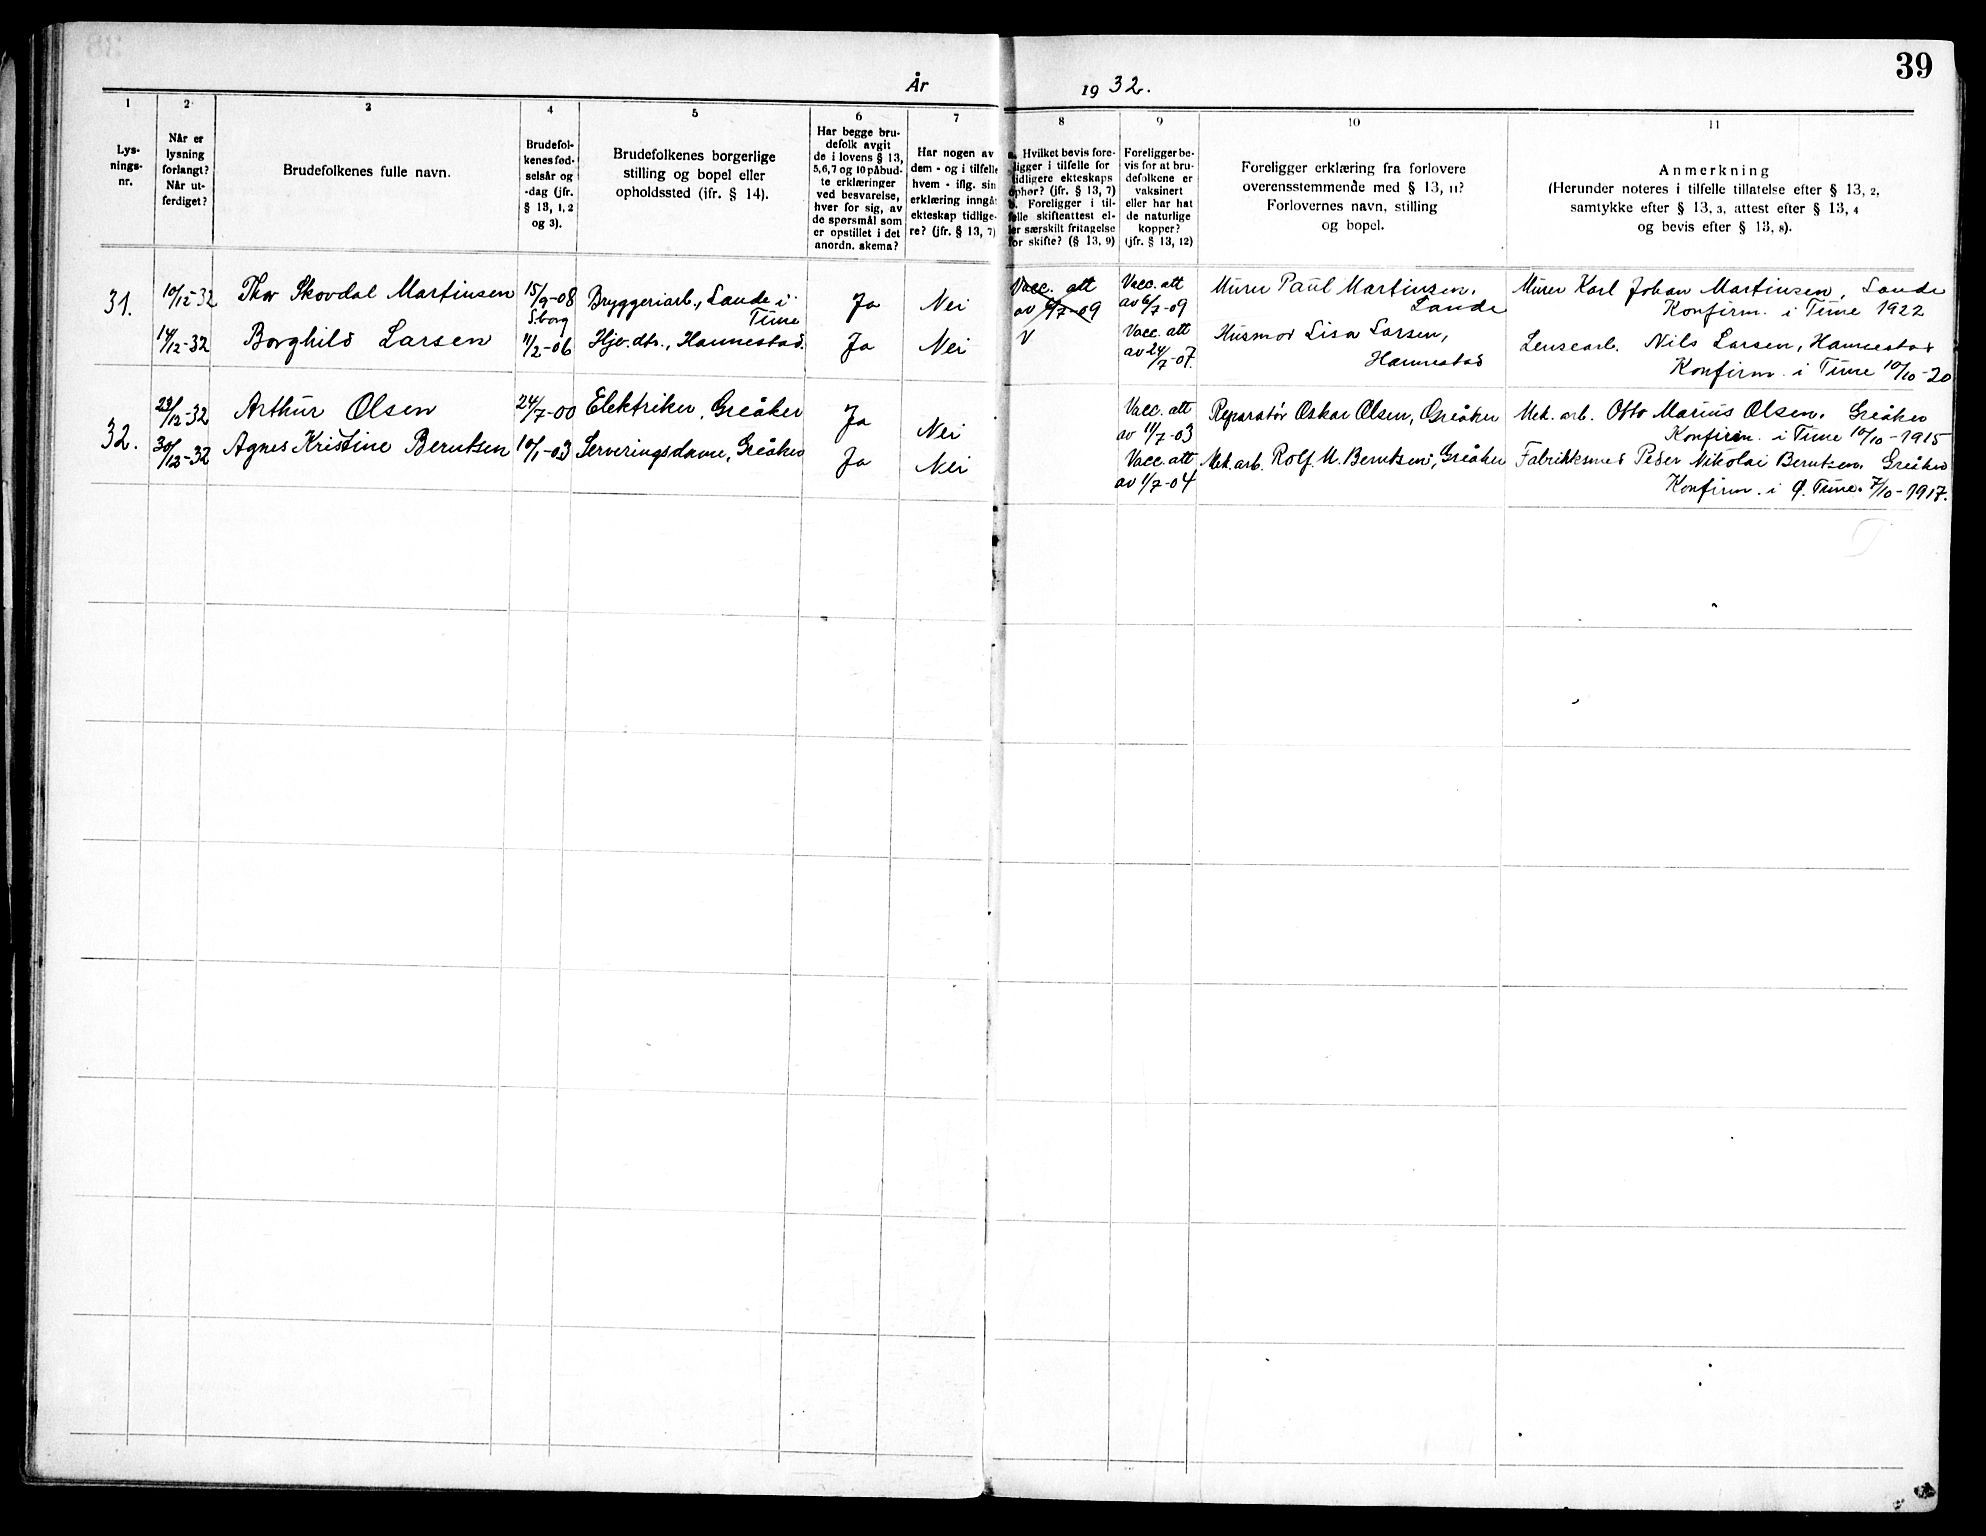 39
År 1932.
1
Lys-
nings-
nr.
2
Når er
lysning
forlangt?
Når ut-
ferdiget?
3
Brudefolkenes fulle navn.
4
Brudefol-
kenes fød-
selsår og
-dag (jfr.
§ 13, 1, 2
og 3).
5
Brudefolkenes borgerlige
stilling og bopel eller
opholdssted (jfr. § 14).
6
Har begge bru-
defolk avgit
de i lovens § 13,
5,6,7 og 10 påbud-
te erklæringer
ved besvarelse,
hver for sig, av
de spørsmål som
er opstillet i det
anordn. skema?
7
Har nogen av
dem - og i tilfelle
hvem - iflg. sin
erklæring inngåt
ekteskap tidlige-
re? (jfr. § 13, 7)
8
a. Hvilket bevis fore-
ligger i tilfelle for
tidligere ekteskaps
ophør? (jfr. § 13, 7)
b. Foreligger i til-
felle skifteattest el-
ler særskilt fritagelse
for skifte? (§ 13, 9)
9
Foreligger be-
vis for at bru-
defolkene er
vaksinert
eller har hat
de naturlige
kopper?
(jfr. § 13, 12)
10
Foreligger erklæring fra forlovere
overensstemmende med § 13, 11?
Forlovernes navn, stilling
og bopel.
11
Anmerkning
(Herunder noteres i tilfelle tillatelse efter § 13, 2,
samtykke efter § 13, 3, attest efter § 13, 4
og bevis efter § 13, 8).
31.
10/12-32
Thor Skovdal Martinsen
15/9-08
S.borg
Bryggeriarb., Lande i
Tune
Ja
Nei
Vacc. att
av 6/7-09
Vacc. att
av 6/7-09
Murer Paul Martinsen,
Lande
Murer Karl Johan Martinsen, Lande
Konfirm. i Tune 1922
14/12-32
Borghild Larsen
11/2-06
Hjv. dtr., Hannestad.
Ja
Nei
V
Vacc. att
av 24/7-07.
Husmor Lisa Larsen,
Hannestad
Lensearb. Nils Larsen, Hannestad
Konfirm. i Tune 10/10-20
32.
23/12-32
Arthur Olsen
24/7-00
Elektriker, Greåker
Ja
Nei
Vacc. att
av 11/7-03
Reparatør Oskar Olsen, Greåker
Mek. arb. Otto Marius Olsen, Greåker
Konfirm. i Tune 10/10-1915
30/12-32
Agnes Kristine Berntsen
10/1-03
Serveringsdame, Greåker
Ja
Nei
Vacc. att
av 1/7-04
Mek. arb. Rolf M. Berntsen, Greåker
Fabrikksmed Peder Nikolai Berntsen, Greåker
Konfirm. i Ø. Tune. 7/10-1917.